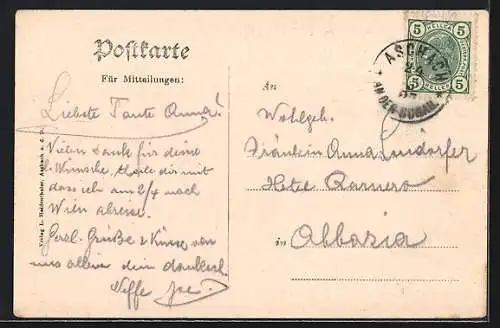 Postkarte
Für Mitteilungen:
Liebste Tante Anna!
Vielen Dank für deine
l. Wünsche, theile dir mit
dass ich am 2/4 nach
Wien abreise.
Herzl. Grüße & Küsse von
uns allen dein dankech.
Neffe
An
Wohlgeb.
Fräulein Anna
Hotel Quarnero
in Abbazia
5 HELLER 5
ASCHACH
AN DER DONAU
Verlag L. Haidenthaler, Aschach a. d. D.